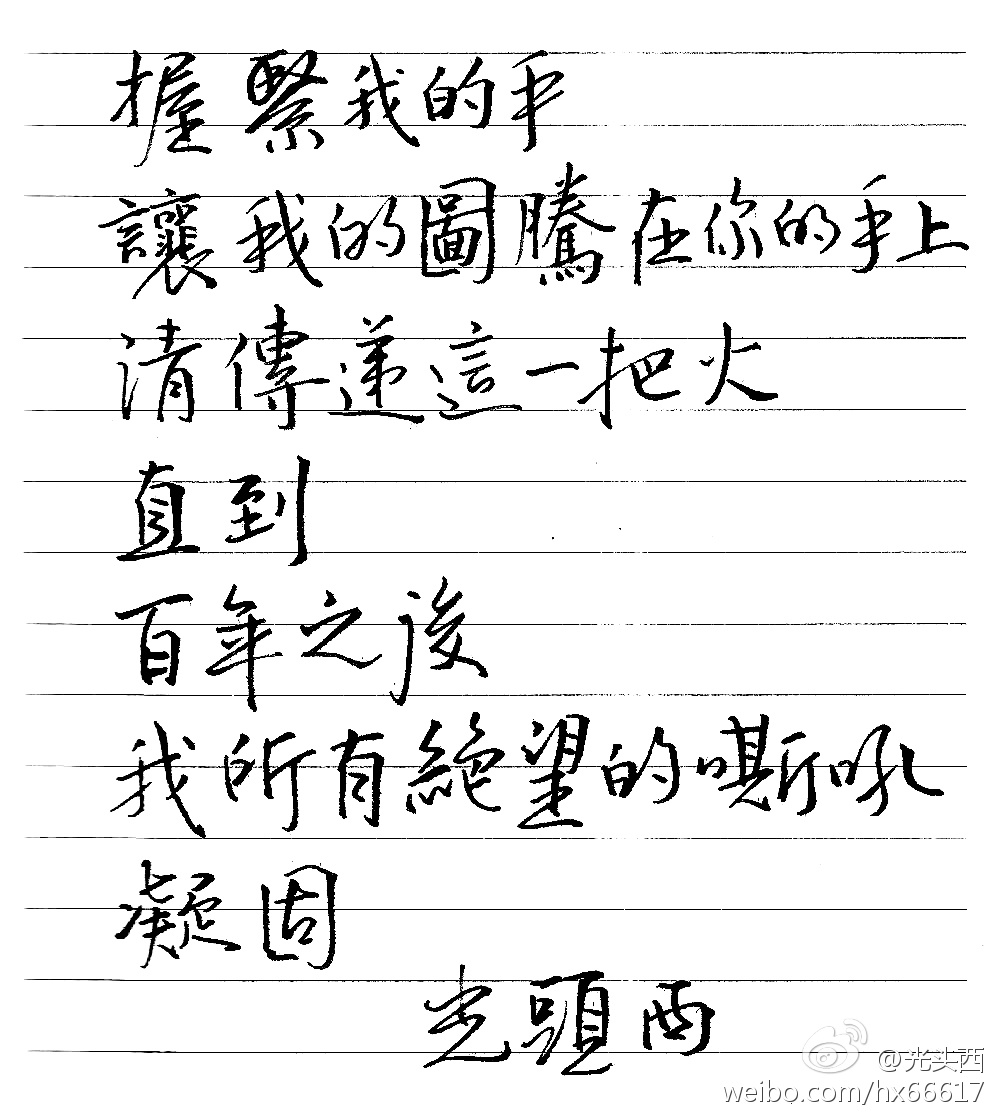 握緊我的手
讓我的圖騰在你的手上
清傳遞這一把火
直到
百年之後
我所有絕望的嘶吼
凝固
光頭西
@光头西
weibo.com/hx66617